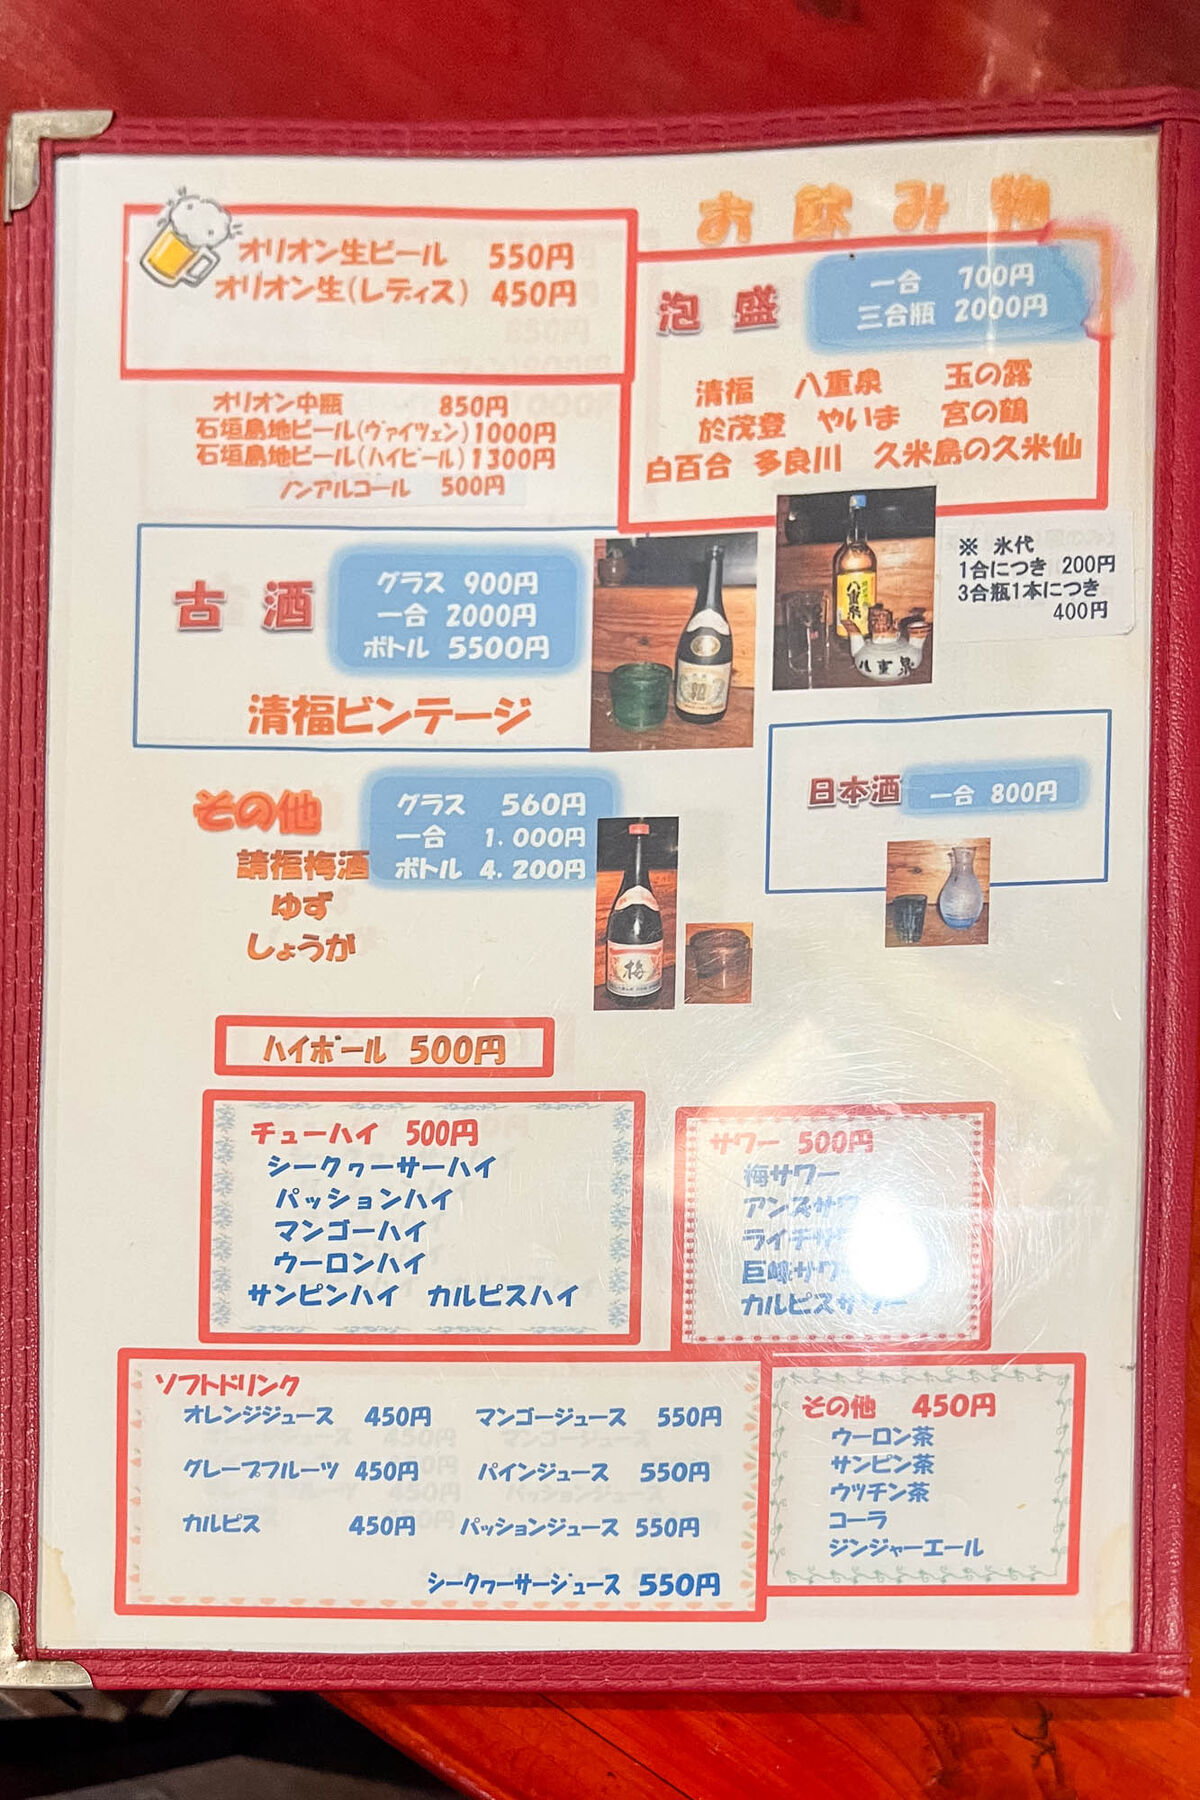 お飲み物
オリオン生ビール 550円
オリオン生(レディス) 450円
オリオン中瓶 850円
石垣島地ビール(ヴァイツェン) 1000円
石垣島地ビール(ハイビール) 1300円
ノンアルコール 500円
泡盛
一合 700円
三合瓶 2000円
清福 八重泉 玉の露
於茂登 やいま 宮の鶴
白百合 多良川 久米島の久米仙
※ 氷代
1合につき 200円
3合瓶1本につき
400円
八重泉
八重泉
古酒
グラス 900円
一合 2000円
ボトル 5500円
清福ビンテージ
その他
グラス 560円
一合 1,000円
ボトル 4,200円
請福梅酒
ゆず
しょうが
梅
日本酒
一合 800円
ハイボール 500円
チューハイ 500円
シークヮーサーハイ
パッションハイ
マンゴーハイ
ウーロンハイ
サンピンハイ カルピスハイ
サワー 500円
梅サワー
カルピスサワー
ソフトドリンク
オレンジジュース 450円 マンゴージュース 550円
グレープフルーツ 450円 パインジュース 550円
カルピス 450円 パッションジュース 550円
シークヮーサージュース 550円
その他 450円
ウーロン茶
サンピン茶
ウッチン茶
コーラ
ジンジャーエール